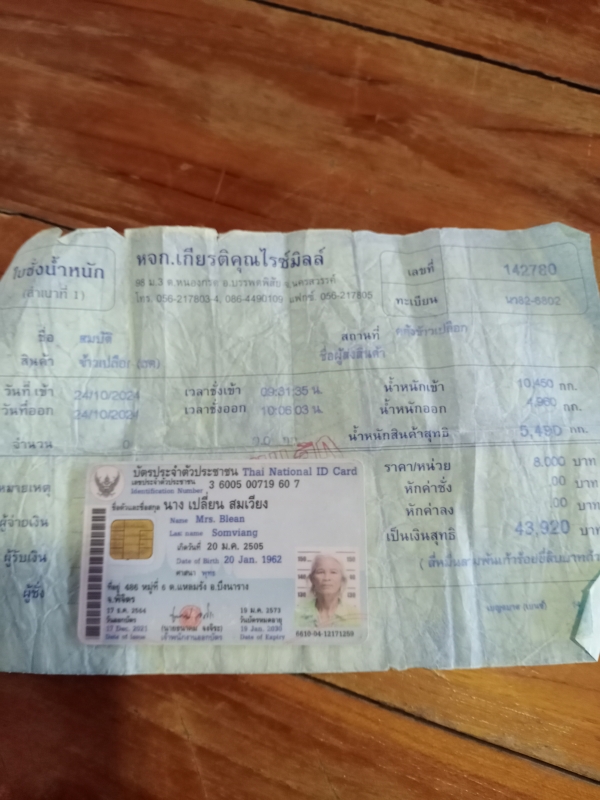 ใบชั่งน้ำหนัก
(สำเนาที่ 1)
หจก.เกียรติคุณไรซ์มิลล์
98 ม.3 ต.หนองกรด อ.บรรพตพิสัย จ.นครสวรรค์
โทร. 056-217803-4, 086-4490109 แฟกซ์ 056-217805
เลขที่ 142780
ทะเบียน
ชื่อ สมบัติ
สถานที่
สินค้า ข้าวเปลือก
ชื่อผู้ส่งสินค้า
วันที่ เข้า 24/10/2024 เวลาชั่งเข้า 09:31:35 น. น้ำหนักเข้า 10,450 กก.
วันที่ออก 24/10/2024 เวลาชั่งออก 10:06:03 น. น้ำหนักออก 4,960 กก.
จำนวน 0 น้ำหนักสินค้าสุทธิ 5,490 กก.
หมายเหตุ
ราคา/หน่วย 8.000 บาท
หักค่าชั่ง .00 บาท
ผู้จ่ายเงิน
หักค่าลง .00 บาท
ผู้รับเงิน
เป็นเงินสุทธิ 43,920 บาท
ผู้ชั่ง
บัตรประจำตัวประชาชน Thai National ID Card
เลขประจำตัวประชาชน 3 6005 00719 60 7
Identification Number
ชื่อตัวและชื่อสกุล นาง เปลี่ยน สมเวียง
Name Mrs. Blean
Last name Somviang
เกิดวันที่ 20 ม.ค. 2505
Date of Birth 20 Jan. 1962
ศาสนา พุทธ
ที่อยู่ 486 หมู่ที่ 6 ต.แหลมรัง อ.บึงนาราง
จ.พิจิตร
17 ธ.ค. 2564
วันออกบัตร
17 Dec. 2021
Date of Issue
เจ้าพนักงานออกบัตร
19 ม.ค. 2573
วันบัตรหมดอายุ
19 Jan. 2030
Date of Expiry